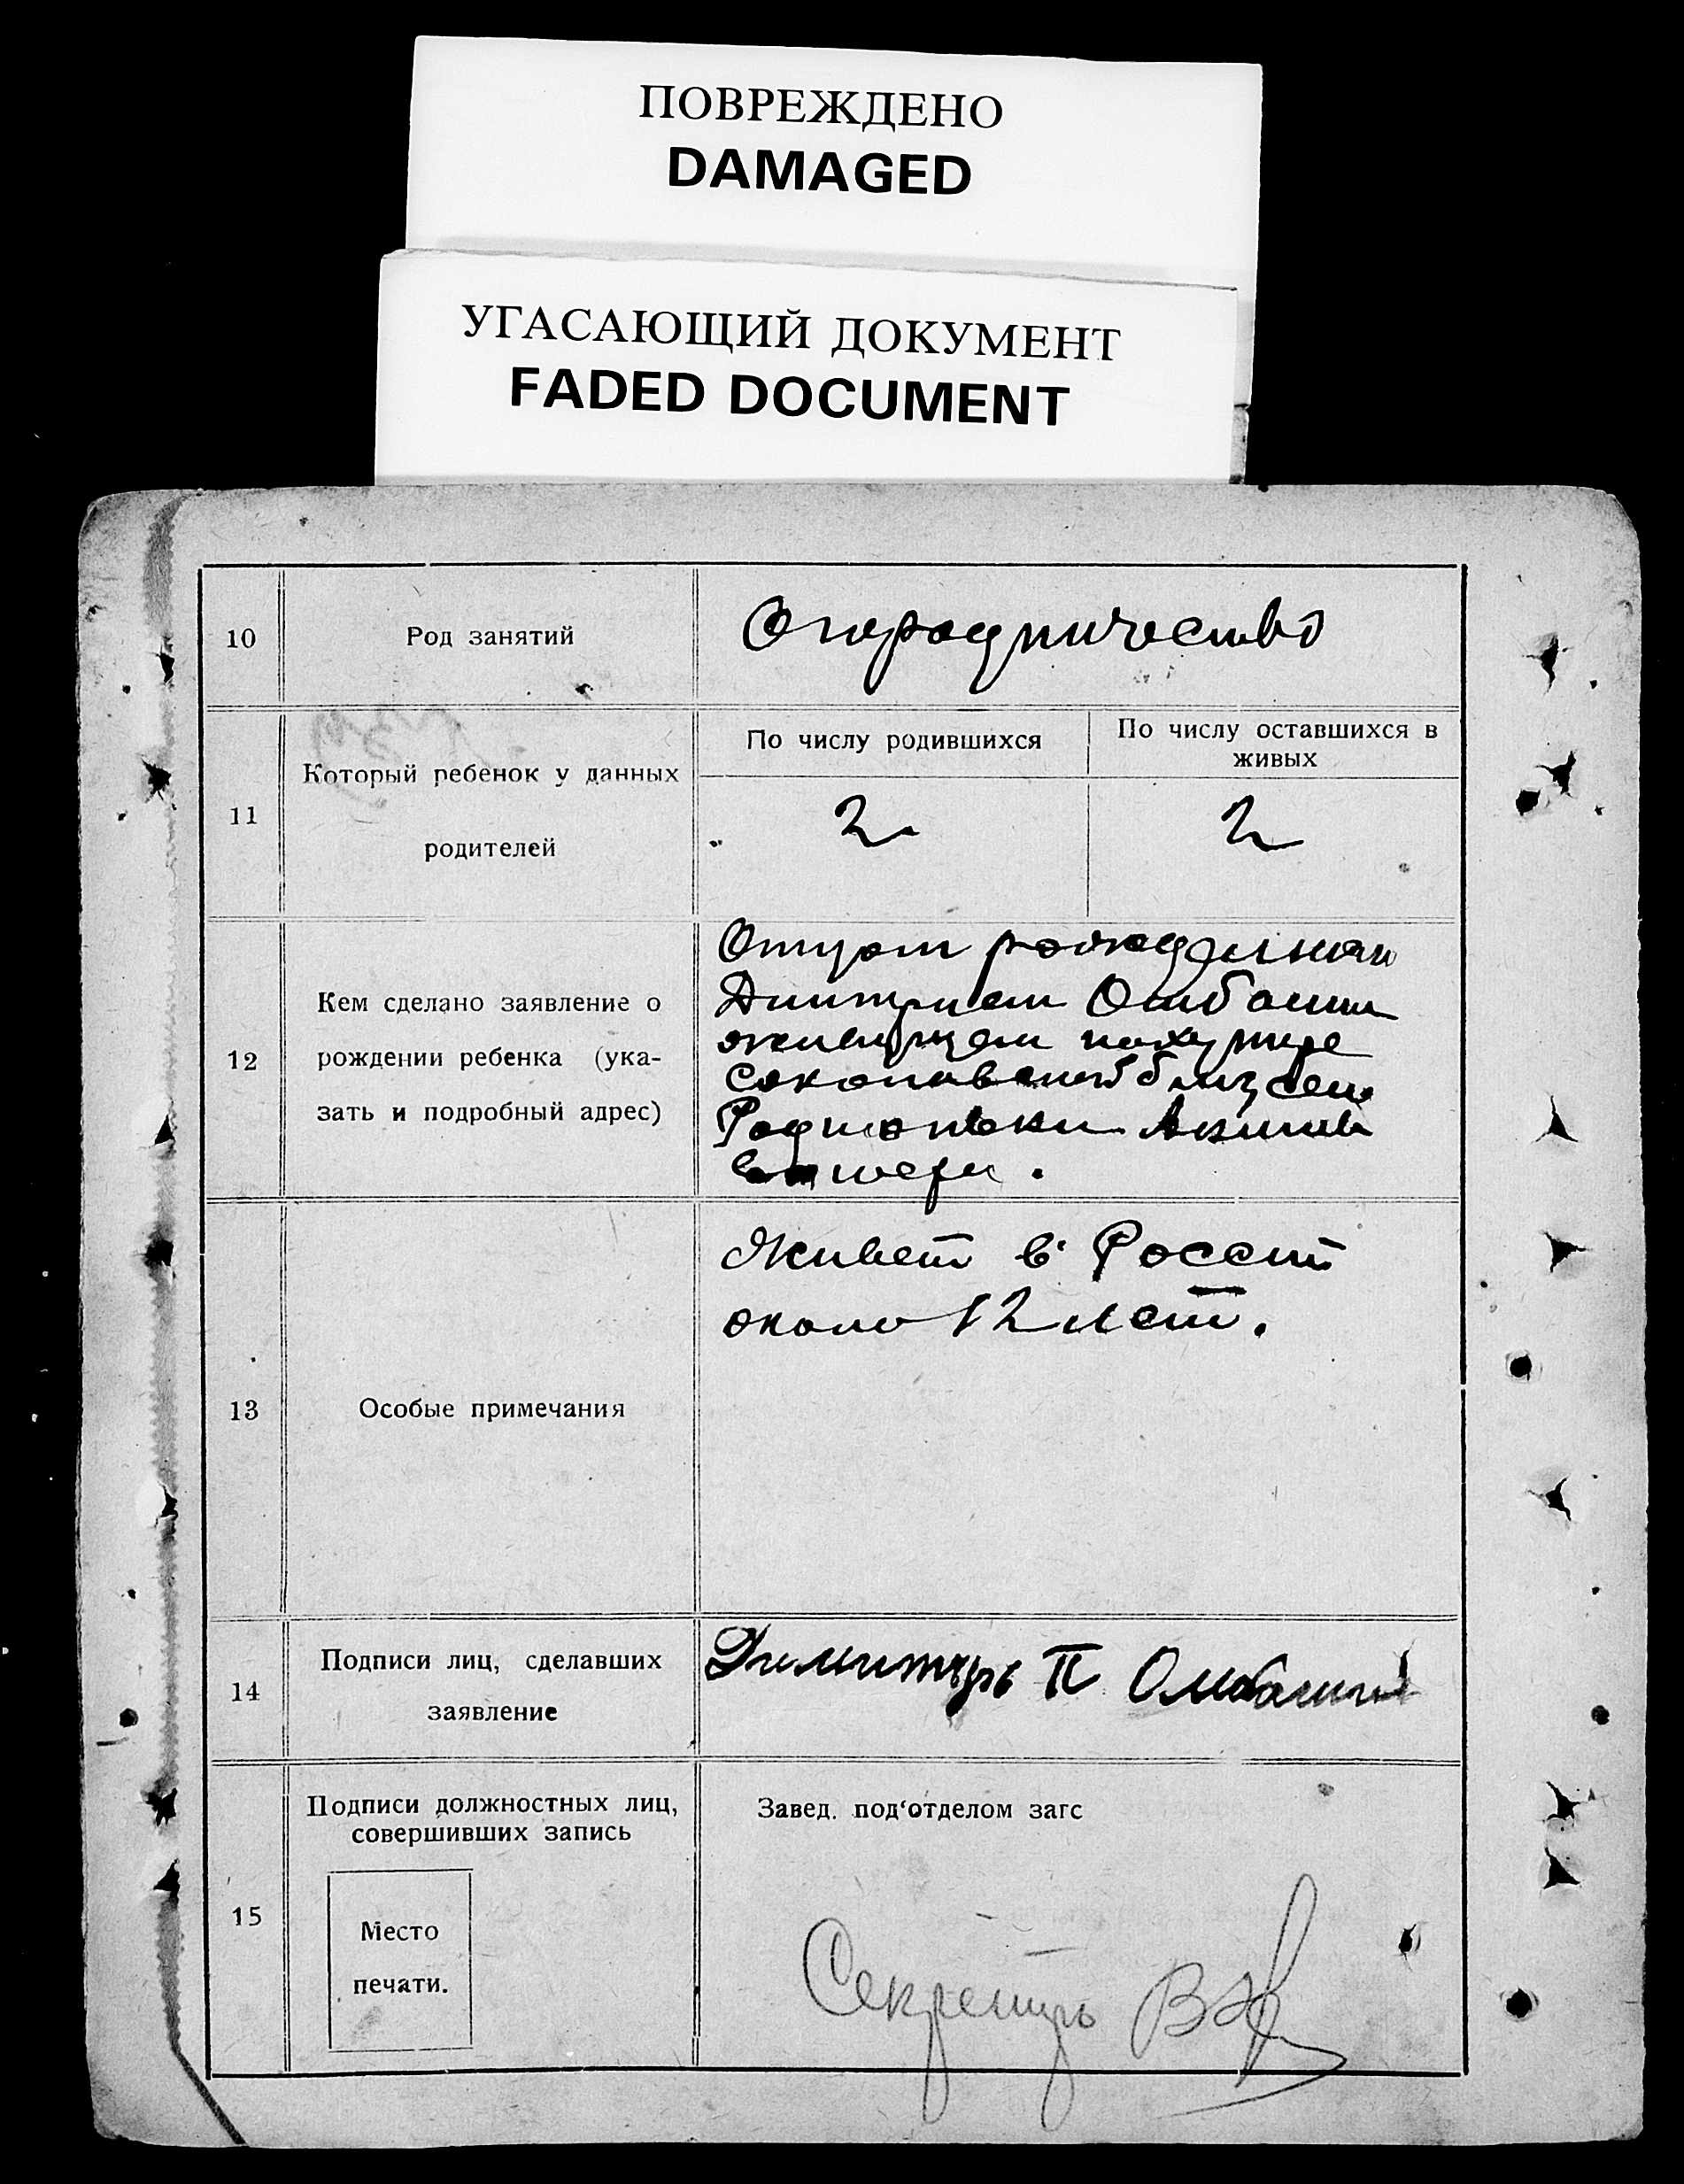 ПОВРЕЖДЕНО
DAMAGED
УГАСАЮЩИЙ ДОКУМЕНТ
FADED DOCUMENT
10
Род занятий
Огородничество
11
Который ребенок у данных
родителей
По числу родившихся
По числу оставшихся в
живых
2
2
12
Кем сделано заявление о
рождении ребенка (ука-
зать и подробный адрес)
Отцом
Дмитрием
живущем
близ села
Родионовки
13
Особые примечания
Живет в России
около 12 лет.
14
Подписи лиц, сделавших
заявление
Димитър П
15
Подписи должностных лиц,
совершивших запись
Место
печати.
Завед. под‘отделом загс
Секретарь